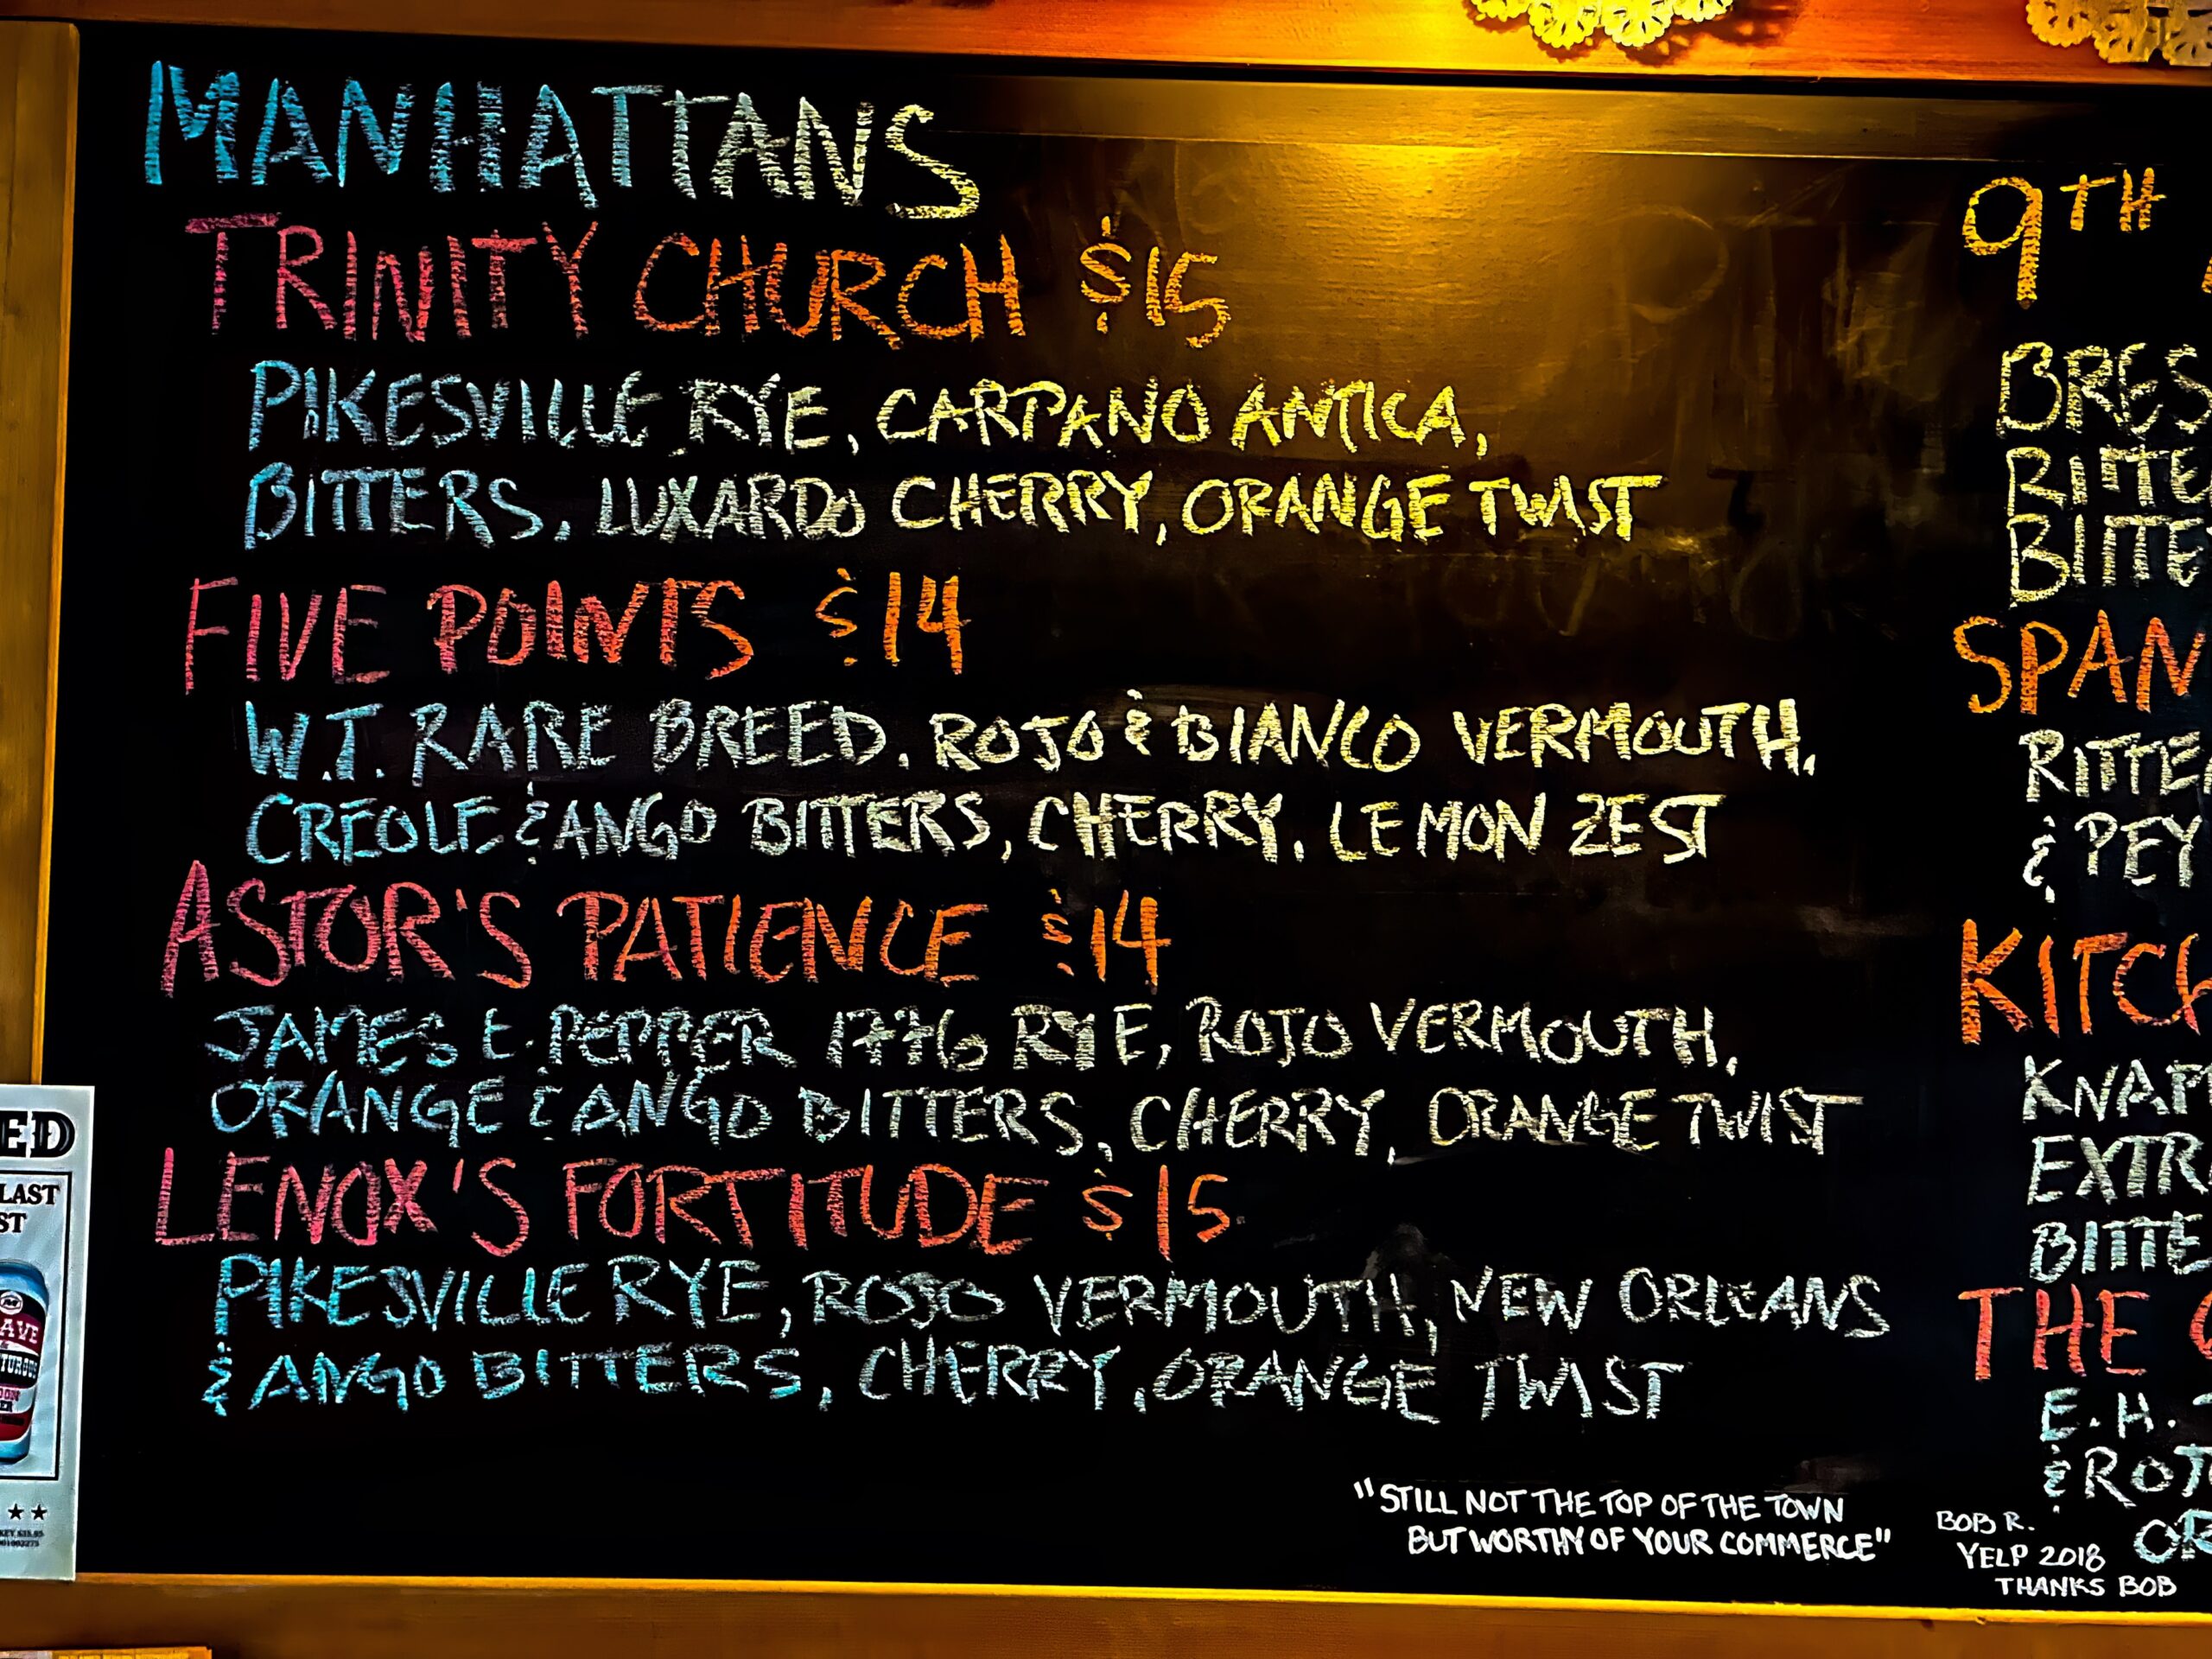 MANHATTANS
TRINITY CHURCH $15
PIKESVILLE RYE, CARPANO ANTICA,
BITTERS, LUXARDO CHERRY, ORANGE TWIST
FIVE POINTS $14
W.T. RARE BREED, ROJO & BIANCO VERMOUTH,
CREOLE & ANGO BITTERS, CHERRY, LEMON ZEST
ASTOR'S PATIENCE $14
JAMES E. PEPPER 1776 RYE, ROJO VERMOUTH,
ORANGE & ANGO BITTERS, CHERRY, ORANGE TWIST
LENOX'S FORTITUDE $15
PIKESVILLE RYE, ROJO VERMOUTH, NEW ORLEANS
& ANGO BITTERS, CHERRY, ORANGE TWIST
"STILL NOT THE TOP OF THE TOWN
BUT WORTHY OF YOUR COMMERCE"
BOB R.
YELP 2018
THANKS BOB
9TH
BRES
RITTE
BITTE
SPAN
RITTE
& PEY
KITCH
KNAP
EXTR
BITTE
THE
E.H.
& ROJ
OR
ED
LAST
ST
AVE